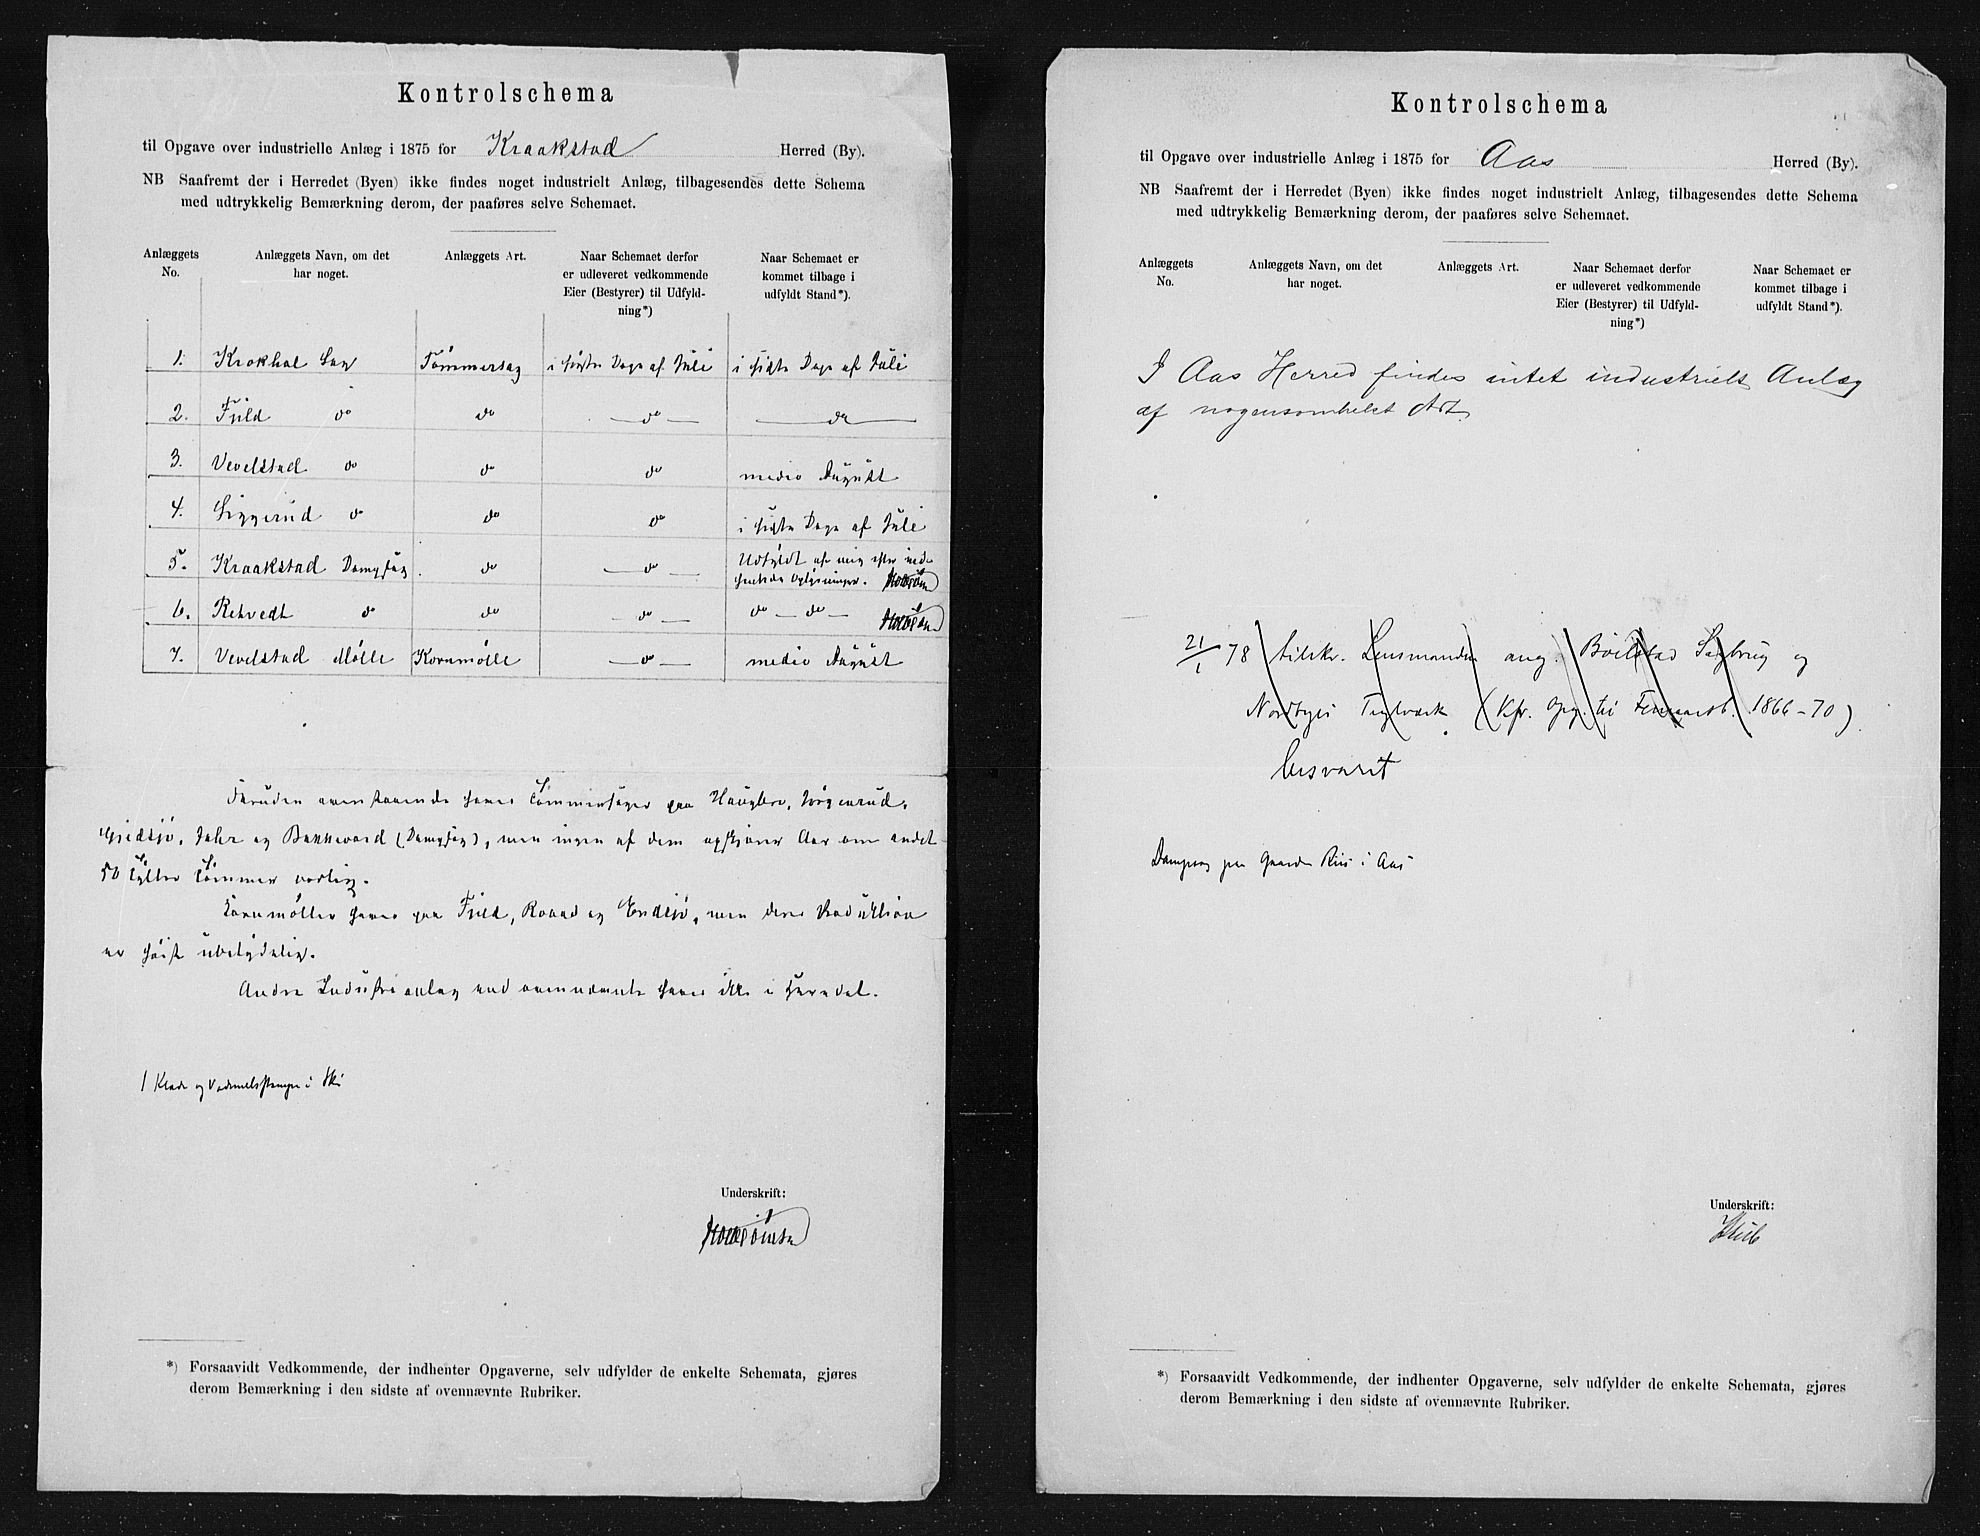 Kontrolschema
til Opgave over industrielle Anlæg i 1875 for Kraakstad Herred (By).
NB Saafremt der i Herredet (Byen) ikke findes noget industrielt Anlæg, tilbagesendes dette Schema
med udtrykkelig Bemærkning derom, der paaføres selve Schemaet.
Anlæggets No. Anlæggets Navn, om det har noget. Anlæggets Art. Naar Schemaet derfor er udleveret vedkommende Eier (Bestyrer) til Udfyldning*) Naar Schemaet er kommet tilbage i udfyldt Stand*).
1. Krokhol Sag Tømmersag i sidste Dage af Juli i sidste Dage af Juli
2. Fuld do do do do
3. Vevelstad do do do medio August
4. Siggerud do do do i sidste Dage af Juli
5. Kraakstad Dampsag do do Udfyldt af mig efter ind-
hentede Oplysninger.
6. Retvedt do do do do do
7. Vevelstad Mølle Kornmølle do medio August
Foruden ovenstaaende haves Tømmersager paa Haugbro,
og Bakkevard (Dampsag), men ingen af dem opskjærer Aar om andet
50 Tylter Tømmer aarlig.
Kornmøller haves paa Fuld, Raaad og Endsjø, men deres Produktion
er høist ubetydelig.
Andre Industrianlæg end ovennævnte haves ikke i Herredet.
1 Klæde og Vadmelsstampe i Ski
Underskrift:
*) Forsaavidt Vedkommende, der indhenter Opgaverne, selv udfylder de enkelte Schemata, gjøres
derom Bemærkning i den sidste af ovennævnte Rubriker.
Kontrolschema
til Opgave over industrielle Anlæg i 1875 for Aas Herred (By).
NB Saafremt der i Herredet (Byen) ikke findes noget industrielt Anlæg, tilbagesendes dette Schema
med udtrykkelig Bemærkning derom, der paaføres selve Schemaet.
Anlæggets No. Anlæggets Navn, om det har noget. Anlæggets Art. Naar Schemaet derfor er udleveret vedkommende Eier (Bestyrer) til Udfyldning*) Naar Schemaet er kommet tilbage i udfyldt Stand*).
I Aas Herred findes intet industrielt Anlæg
af nogensomhelst Art.
21/1 78 tilskr. Lensmanden ang. Bølstad Sagbrug og
Nordbyes Teglværk (Kfr. Opg. til Femaarsb. 1866-70)
besvaret
Dampsag paa Gaarden Riis i Aas
Underskrift:
*) Forsaavidt Vedkommende, der indhenter Opgaverne, selv udfylder de enkelte Schemata, gjøres
derom Bemærkning i den sidste af ovennævnte Rubriker.